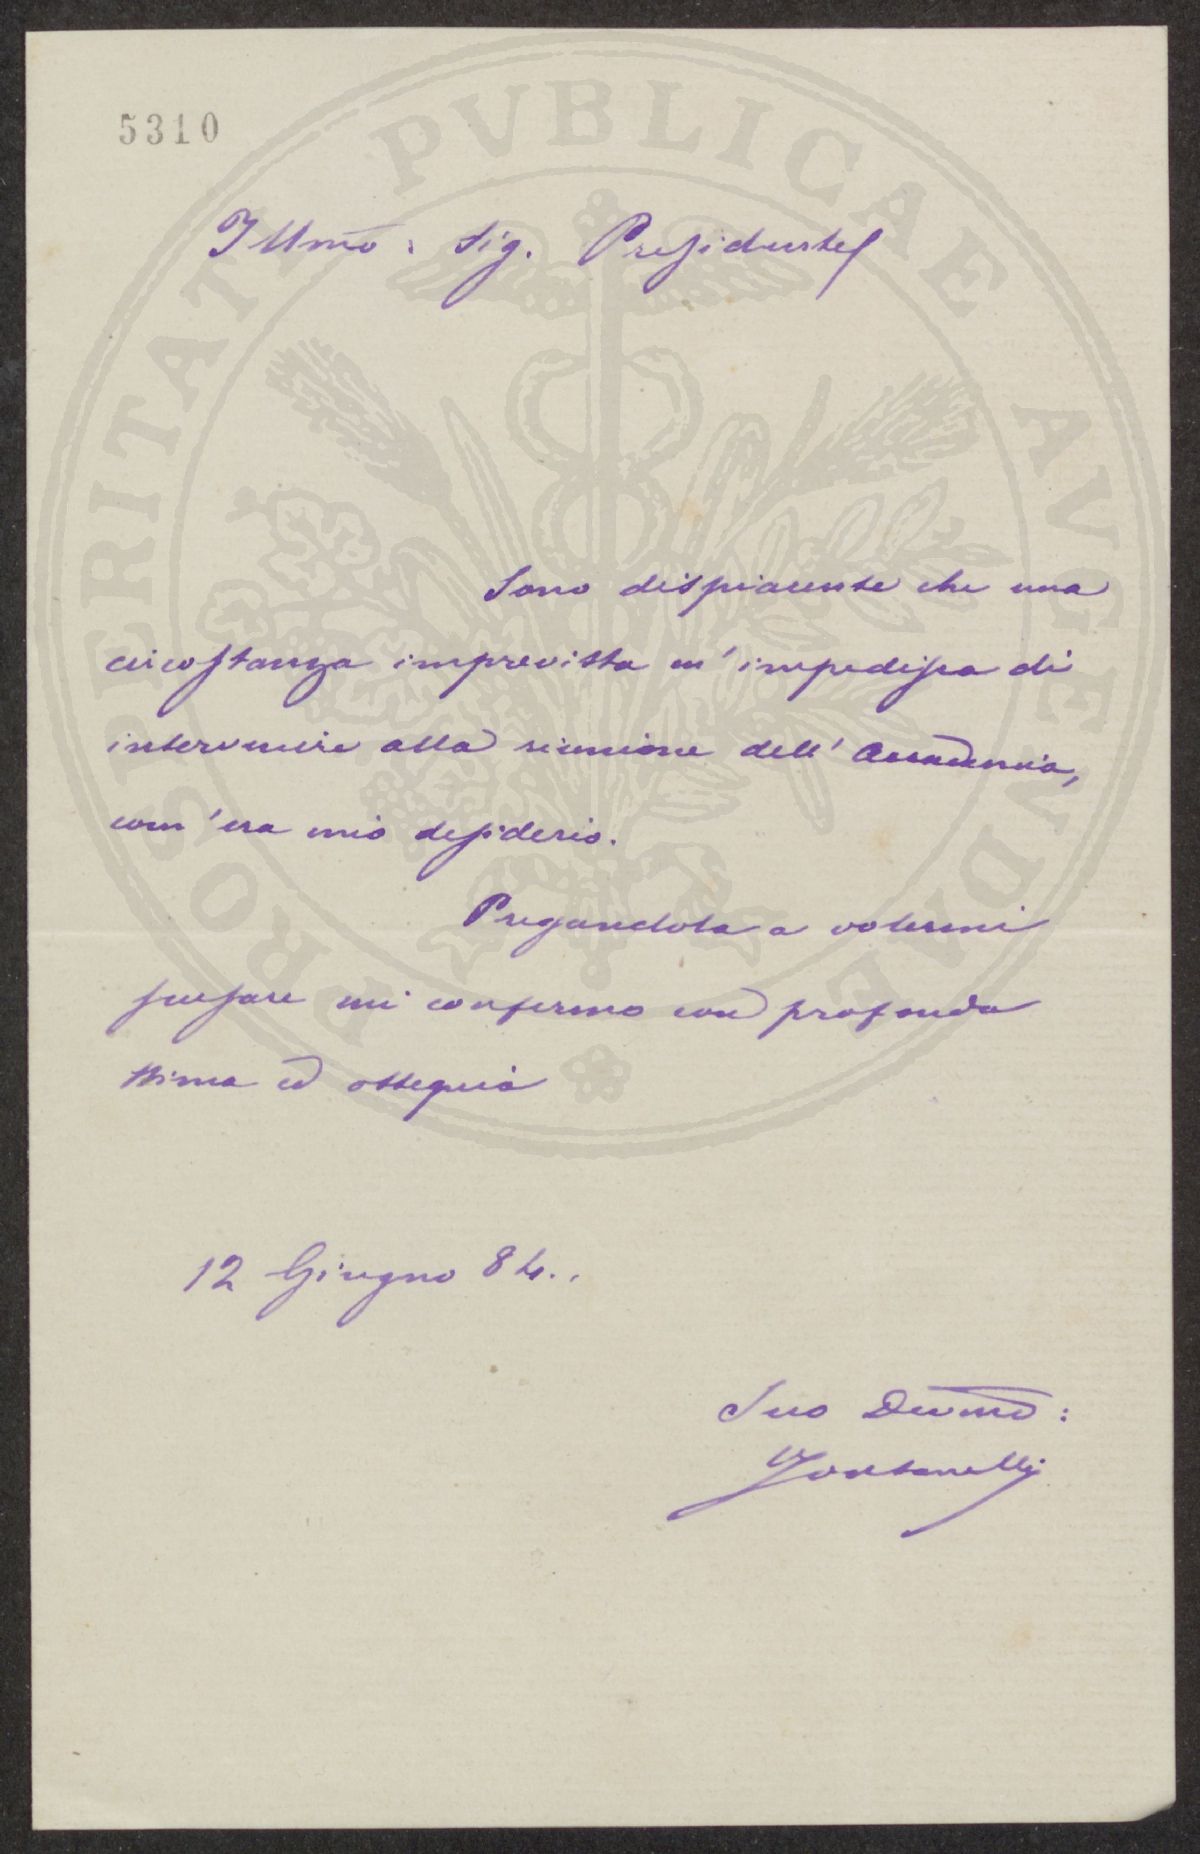 5310
PROSPERITATI PVBLICAE AVGENDAE
Illmo: Sig. Presidente
Sono dispiacente che una
circostanza imprevista m'impedisca di
intervenire alla riunione dell'Accademia,
com'era mio desiderio.
Pregandola a volermi
scusare mi confermo con profonda
stima ed ossequio
12 Giugno 84..
Suo Devmo:
Fontanelli